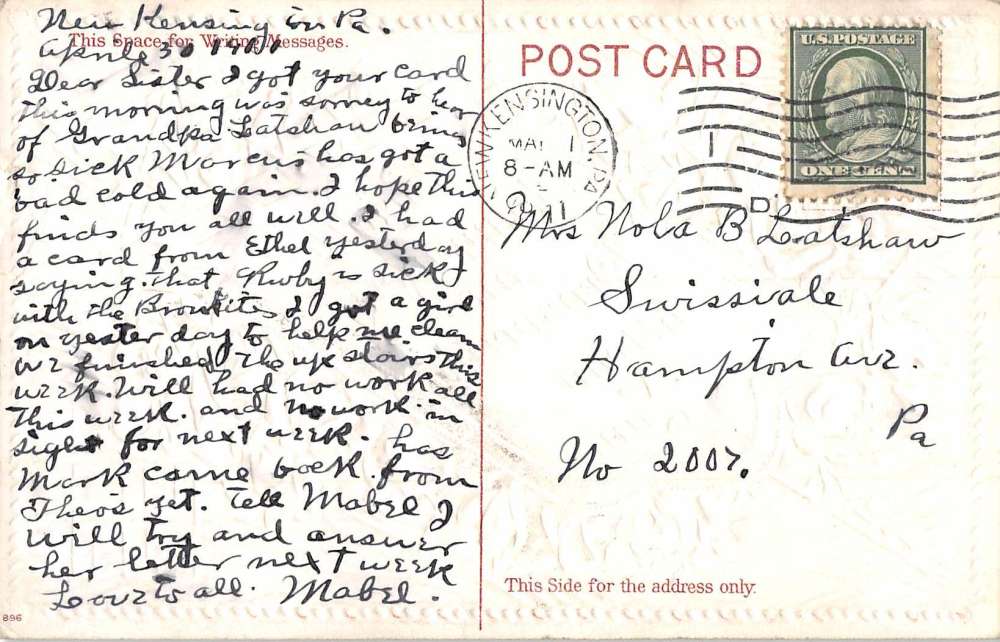 New Kensington Pa.
This Space for Writing Messages.
April 30 1911
Dear Sister I got your card
this morning was sorrey to hear
of Grandpa Latshaw being
so sick Marcus has got a
bad cold again. I hope this
finds you all well. I had
a card from Ethel yesterday
saying. that Rubby is sick
with the Bronkites I got a girl
on yester day to help me clean
we finished the up stairs this
week. Will had no work all
this week. and no work in
sight for next week. has
Mark came back from
Theo's yet. Tell Mabel I
will try and answer
her letter next week
Love to all. Mabel.
896
POST CARD
U.S. POSTAGE
ONE CENT
NEW KENSINGTON, PA
MAY 1
8-AM
1911
Mrs Nola B Latshaw
Swissivale
Hampton Ave.
Pa
No 2007.
This Side for the address only.